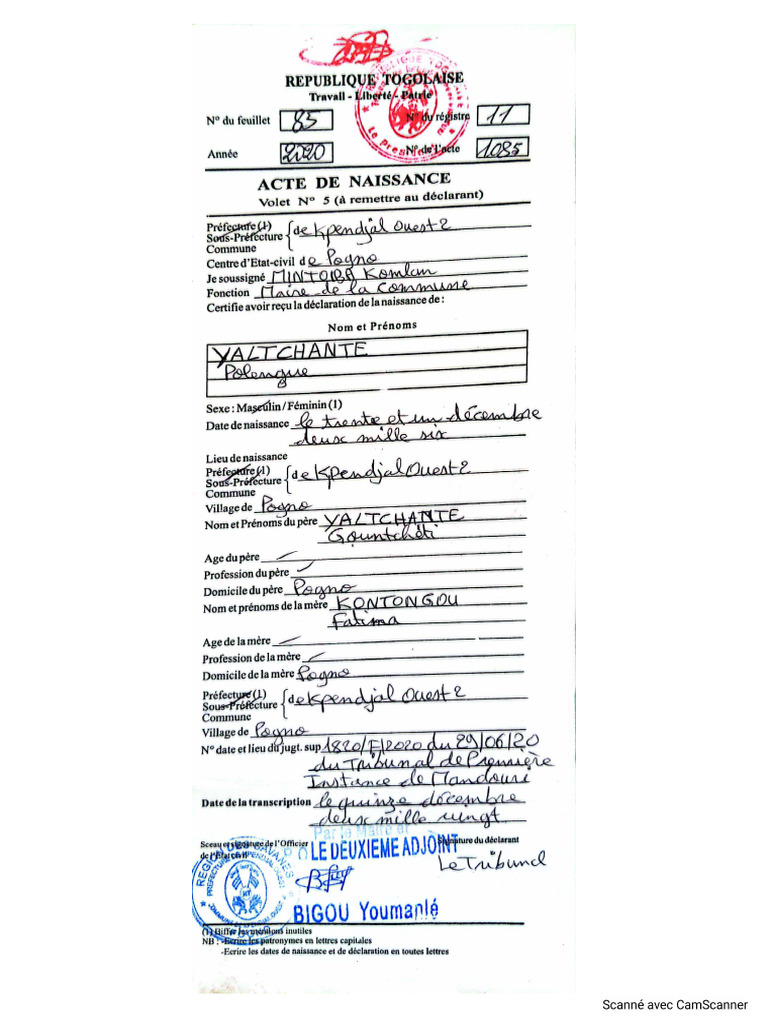 REPUBLIQUE TOGOLAISE
Travail - Liberté - Patrie
N° du feuillet 85 N° du régistre 11
Année 2020 N° de l'acte 1085
ACTE DE NAISSANCE
Volet N° 5 (à remettre au déclarant)
Préfecture (1)
Sous-Préfecture de Kpendjal Ouest 2
Commune
Centre d'Etat-civil de Pogno
Je soussigné MINTOIBA Komlan
Fonction Maire de la Commune
Certifie avoir reçu la déclaration de la naissance de :
Nom et Prénoms
YALTCHANTE
Polengue
Sexe : Masculin / Féminin (1)
Date de naissance le trente et un décembre
deux mille six
Lieu de naissance
Préfecture (1)
Sous-Préfecture de Kpendjal Ouest 2
Commune
Village de Pogno
Nom et Prénoms du père YALTCHANTE
Gountchéti
Age du père
Profession du père
Domicile du père Pogno
Nom et prénoms de la mère KONTONGOU
Fatima
Age de la mère
Profession de la mère
Domicile de la mère Pogno
Préfecture (1)
Sous-Préfecture de Kpendjal Ouest 2
Commune
Village de Pogno
N° date et lieu du jugt. sup 1820/F/2020 du 29/06/20
du Tribunal de Première
Instance de Mandouri
Date de la transcription le quinze décembre
deux mille vingt
Par le Maire et
Sceau et signature de l'Officier Signature du déclarant
de l'Etat civil LE DEUXIEME ADJOINT
Le Tribunal
BIGOU Youmanlé
(1) Biffer les mentions inutiles
NB : -Ecrire les patronymes en lettres capitales
-Ecrire les dates de naissance et de déclaration en toutes lettres
Scanné avec CamScanner